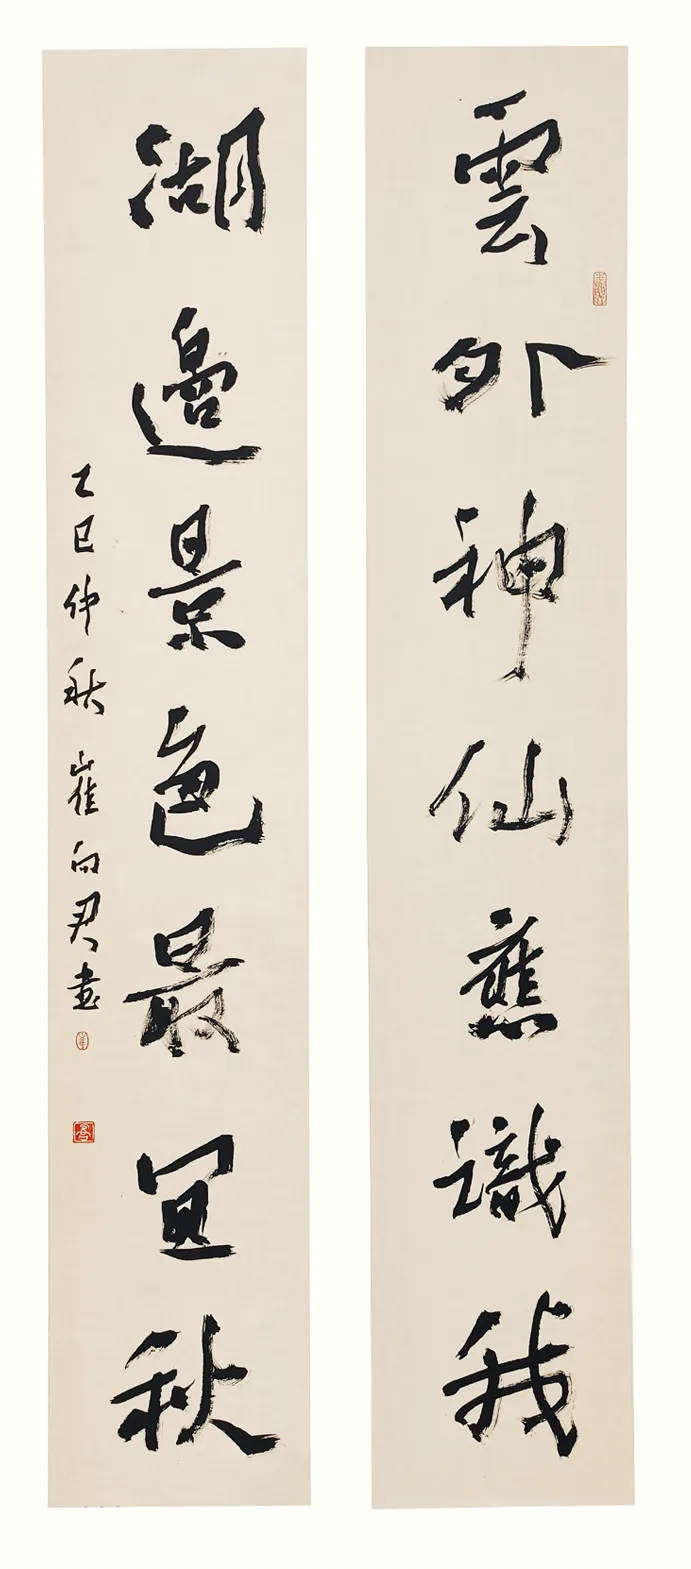 雲外神仙應識我
湖邊景色最宜秋
乙巳仲秋崔向君書